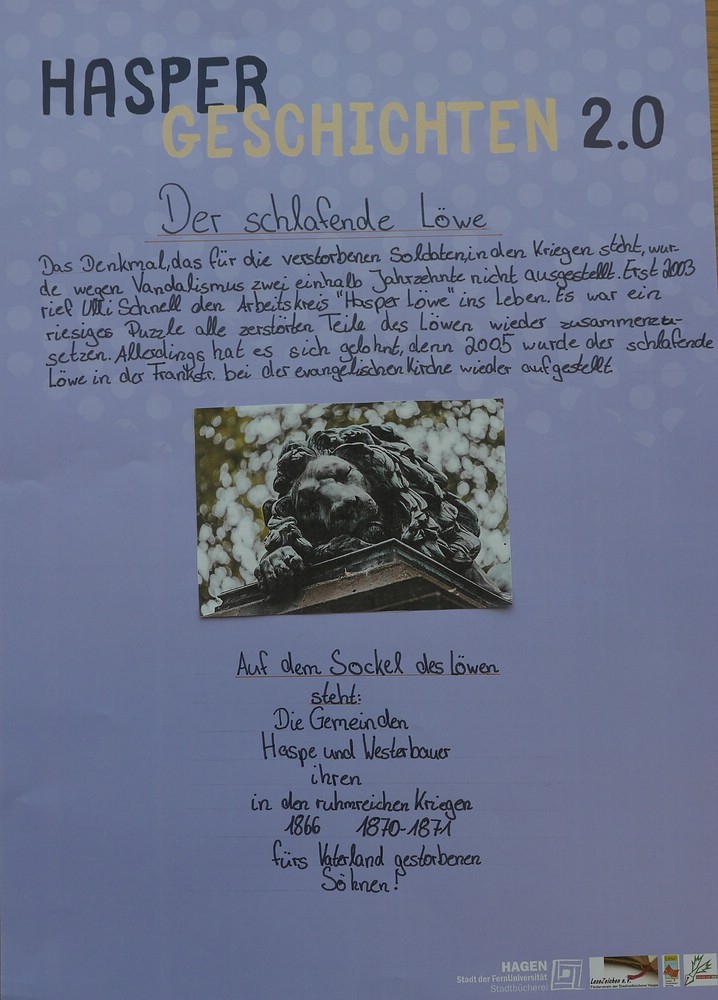 HASPER
GESCHICHTEN 2.0
Der schlafende Löwe
Das Denkmal, das für die verstorbenen Soldaten, in den Kriegen steht, wur-
de wegen Vandalismus zwei einhalb Jahrzehnte nicht ausgestellt. Erst 2003
rief Ulli Schnell den Arbeitskreis "Hasper Löwe" ins Leben. Es war ein
riesiges Puzzle alle zerstörten Teile des Löwen wieder zusammenzu-
setzen. Allerdings hat es sich gelohnt, denn 2005 wurde der schlafende
Löwe in der Frankstr. bei der evangelischen Kirche wieder aufgestellt
Auf dem Sockel des Löwen
steht:
Die Gemeinden
Haspe und Westerbauer
ihren
in den ruhmreichen Kriegen
1866 1870-1871
fürs Vaterland gestorbenen
Söhnen!
HAGEN
Stadt der FernUniversität
Stadtbücherei
LeseZeichen e.V.
Förderverein der Stadtteilbücherei Haspe